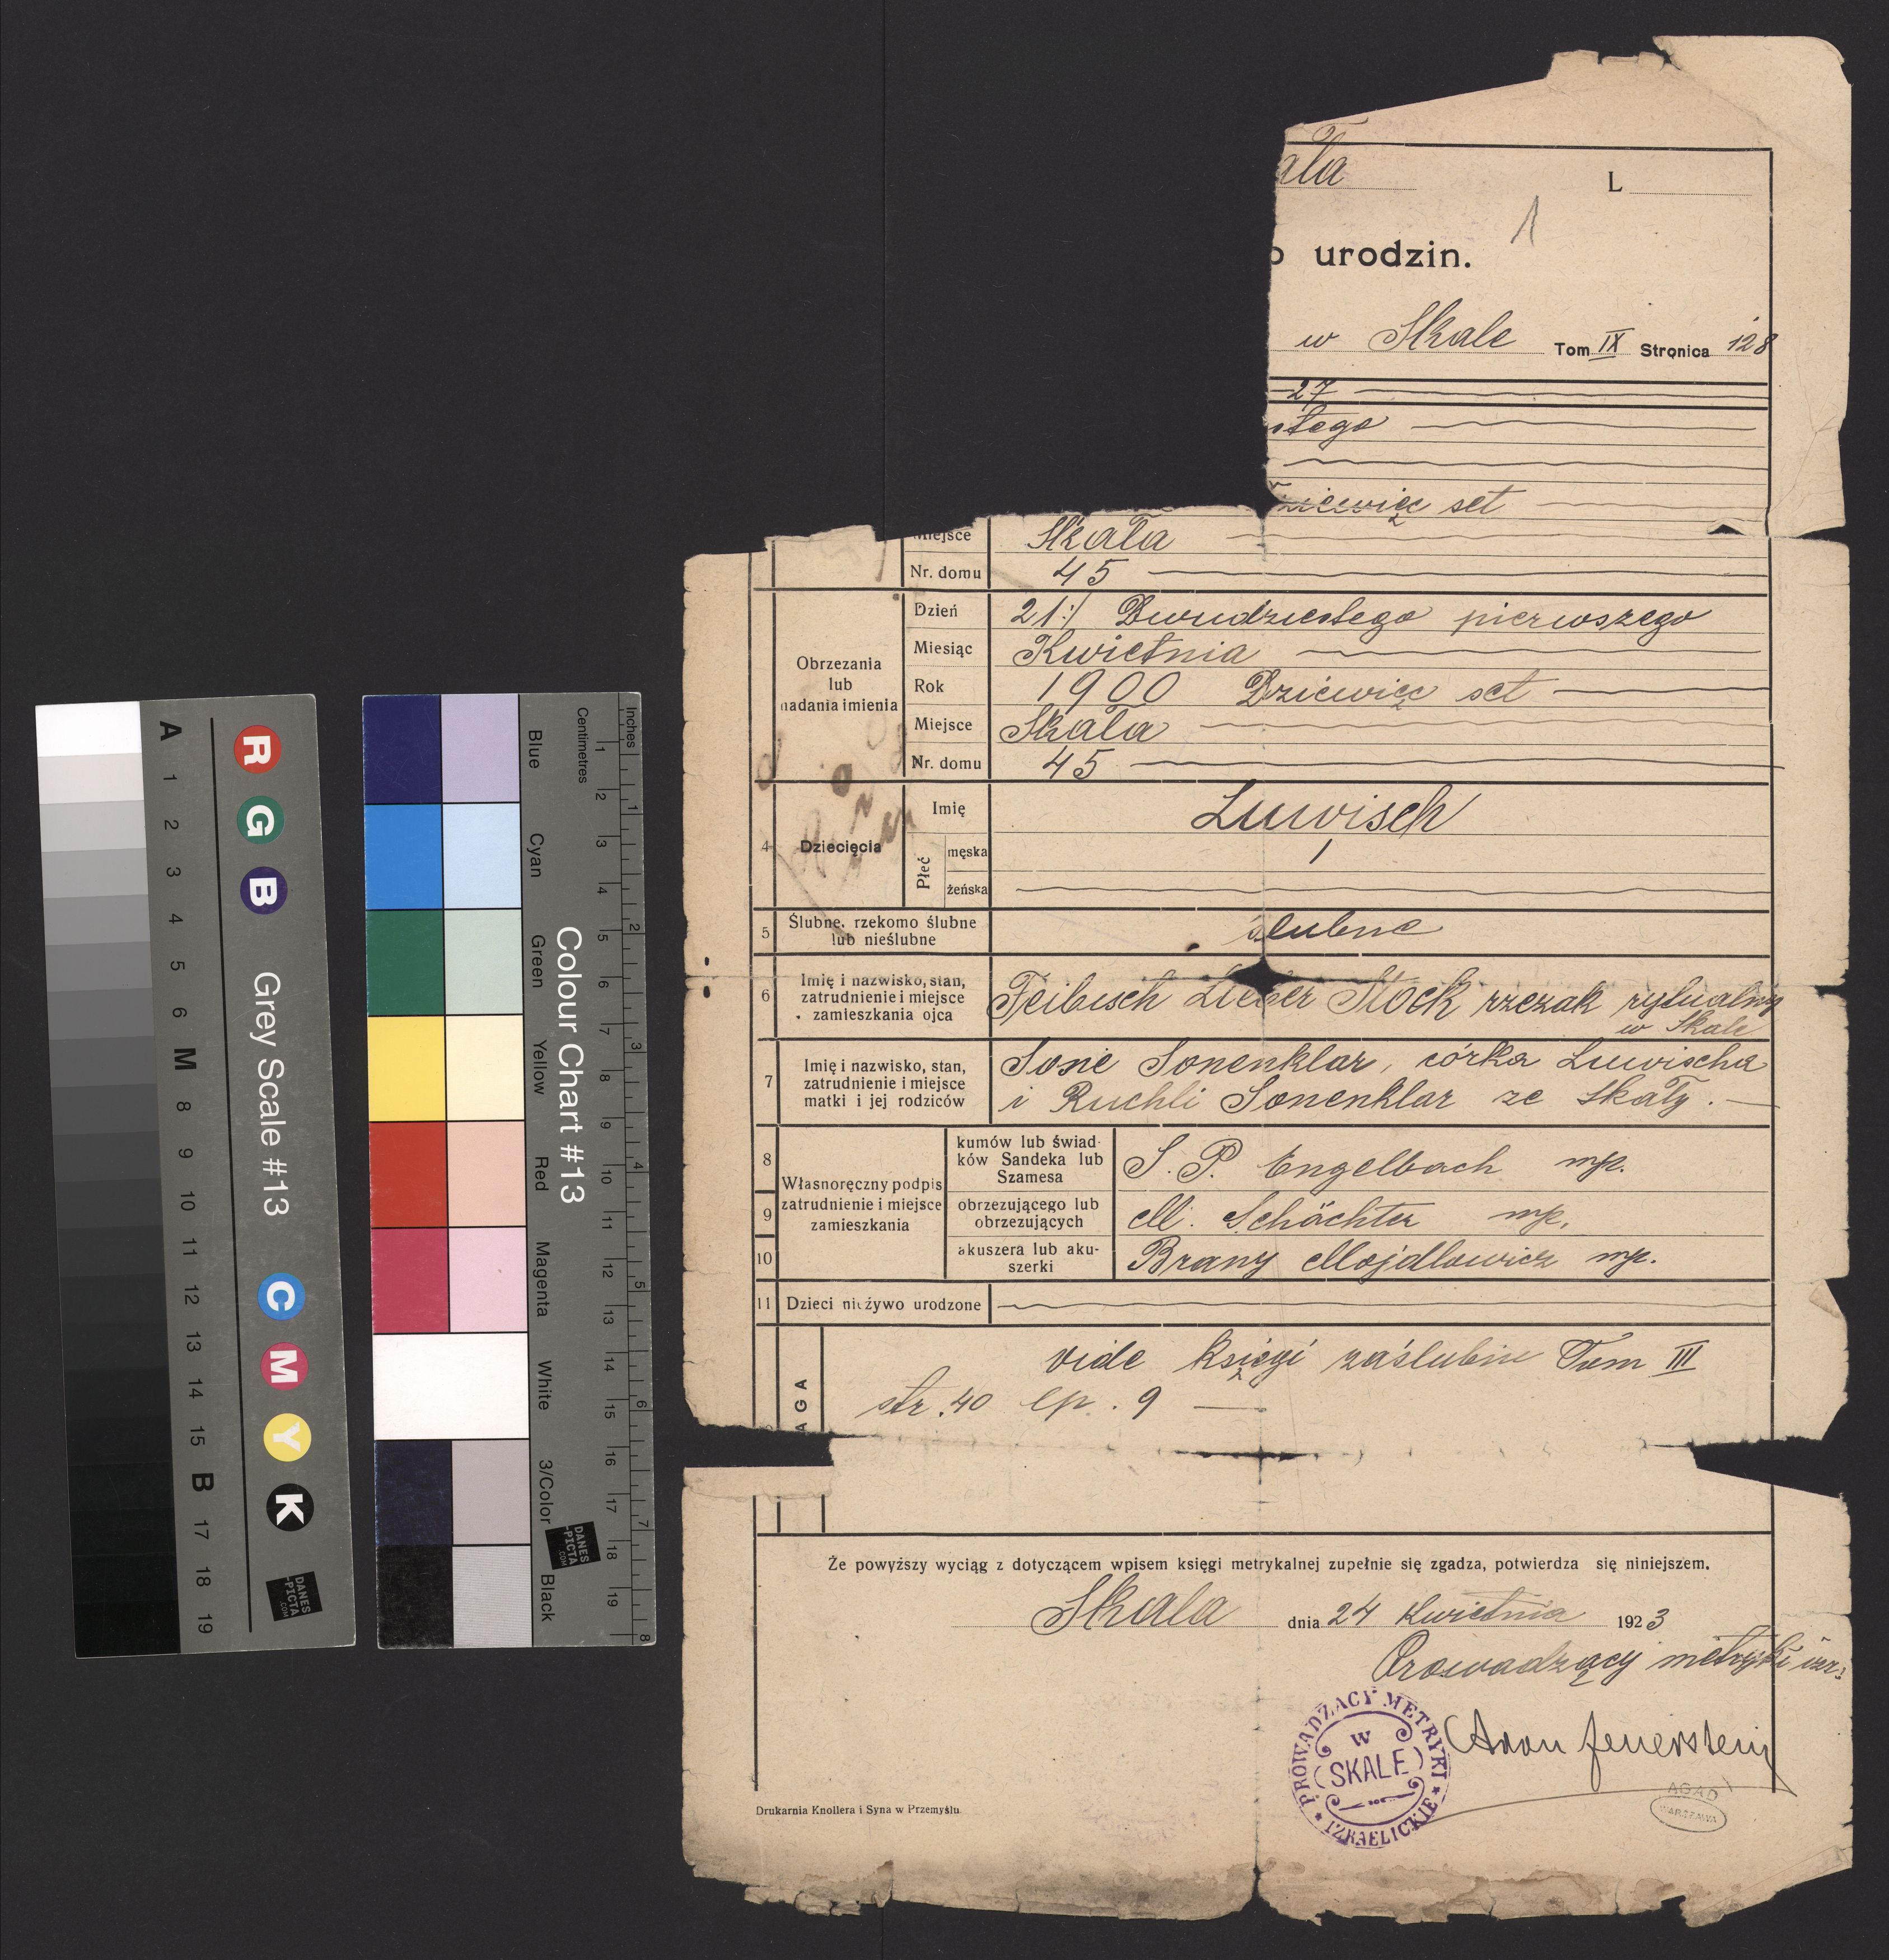 ała
L
1
o urodzin.
w Skale Tom IX Stronica 128
27
stego
dziewięć set
Miejsce Skała
Nr. domu 45
Obrzezania
lub
nadania imienia
Dzień 21:/ Dwudziestego pierwszego
Miesiąc Kwietnia
Rok 1900 Dziewięć set
Miejsce Skała
Nr. domu 45
4 Dziecięcia
Imię Luwisch
Płeć
męska 1
żeńska
5 Ślubne, rzekomo ślubne
lub nieślubne
ślubne
6 Imię i nazwisko, stan,
zatrudnienie i miejsce
zamieszkania ojca
Feibisch Lieber Stock rzezak rytualny
w Skale
7 Imię i nazwisko, stan,
zatrudnienie i miejsce
matki i jej rodziców
Sosie Sonenklar, córka Luwischa
i Ruchli Sonenklar ze Skały.
Własnoręczny podpis
zatrudnienie i miejsce
zamieszkania
8 kumów lub świad-
ków Sandeka lub
Szamesa
S. P. Engelbach mp.
9 obrzezującego lub
obrzezujących
M. Schächter mp.
10 akuszera lub aku-
szerki
Brany Mojdlowicz mp.
11 Dzieci nieżywo urodzone
AGA
vide księgi zaślubin Tom III
str. 40 lp. 9
Że powyższy wyciąg z dotyczącem wpisem księgi metrykalnej zupełnie się zgadza, potwierdza się niniejszem.
Skała dnia 24 Kwietnia 1923
Prowadzący metryki izr:
Aron Feuerstein
PROWADZACY METRYKI
IZRAELICKIE
W
SKALE
AGAD
WARSZAWA
Drukarnia Knollera i Syna w Przemyślu.
A 1 2 3 4 5 6 M 8 9 10 11 12 13 14 15 B 17 18 19
R G B
Grey Scale #13
C M Y K
DANES
PICTA
.COM
Blue Cyan Green Yellow Red Magenta White 3/Color Black
Colour Chart #13
DANES
PICTA
.COM
Centimetres
1 2 3 4 5 6 7 8 9 10 11 12 13 14 15 16 17 18 19
Inches
1 2 3 4 5 6 7 8